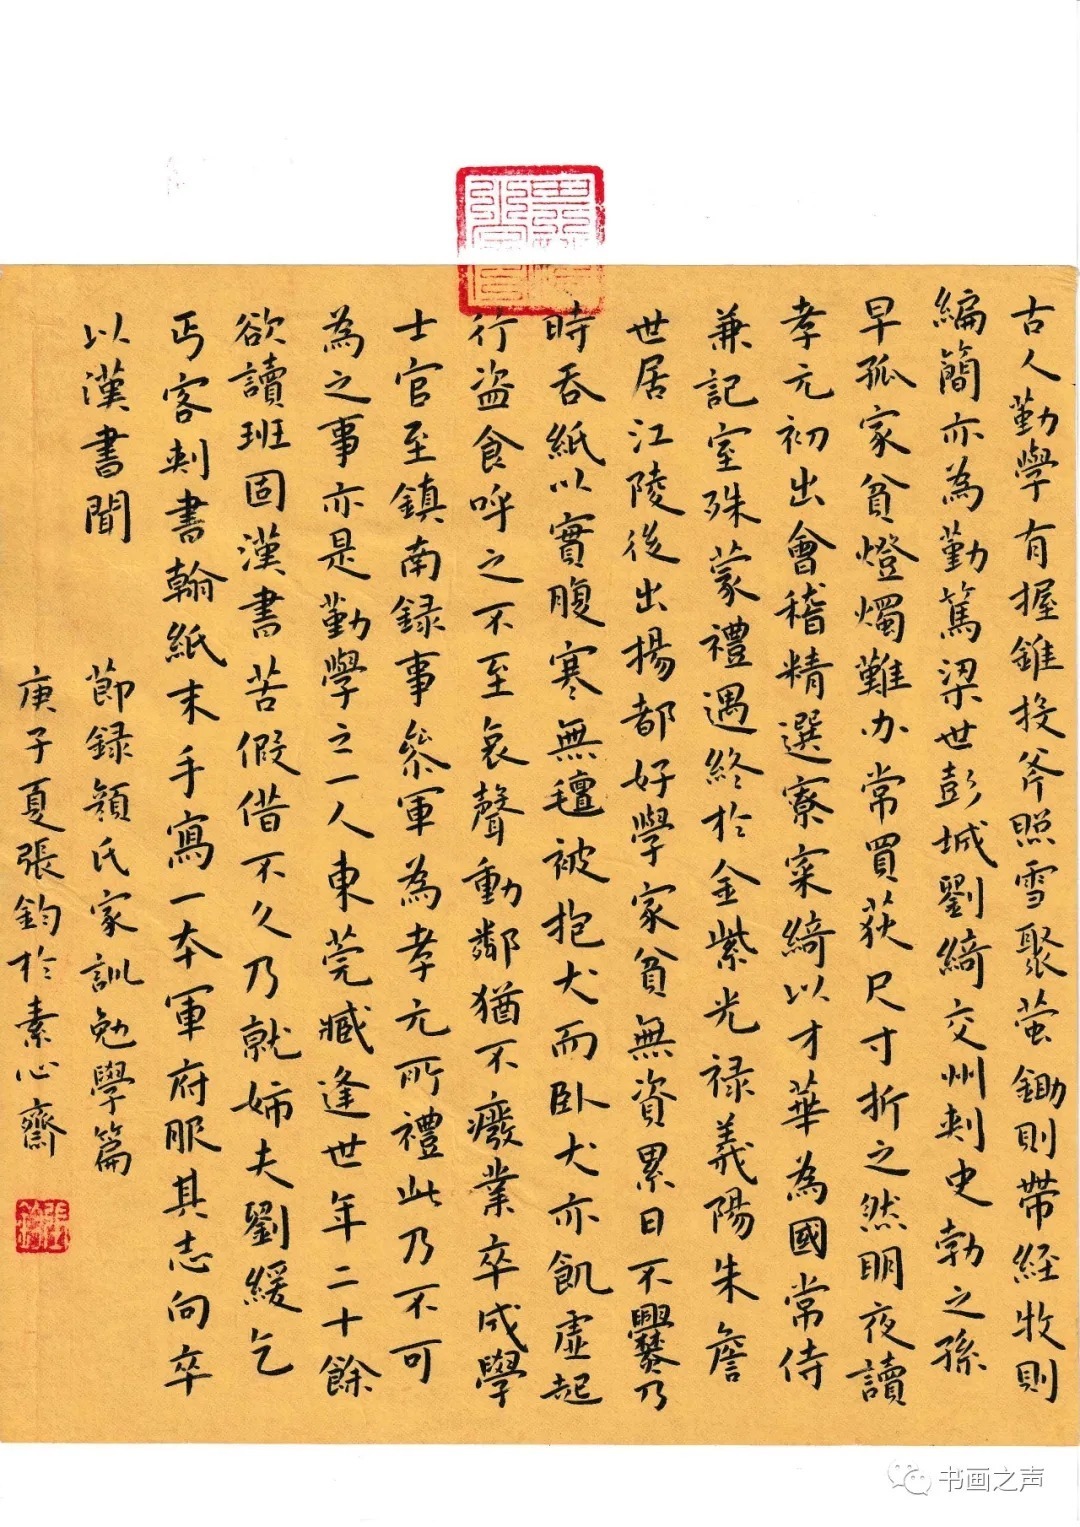 古人勤學有握錐投斧照雪聚萤鋤則帶経牧則
編簡亦為勤篤梁世彭城劉綺交州刺史勃之孫
早孤家貧燈燭難办常買荻尺寸折之然明夜讀
孝元初出會稽精選寮寀綺以才華為國常侍
兼記室殊蒙禮遇終於金紫光禄義陽朱詹
世居江陵後出揚都好學家貧無資累日不爨乃
時吞紙以實腹寒無氊被抱犬而卧犬亦飢虚起
行盗食呼之不至哀聲動鄰猶不癈業卒成學
士官至鎮南録事叅軍為孝元所禮此乃不可
為之事亦是勤學之一人東莞臧逢世年二十餘
欲讀班固漢書苦假借不久乃就姉夫劉緩乞
丐客刺書翰紙末手寫一本軍府服其志向卒
以漢書聞
節録顔氏家訓勉學篇
庚子夏張鈞於素心齋
书画之声